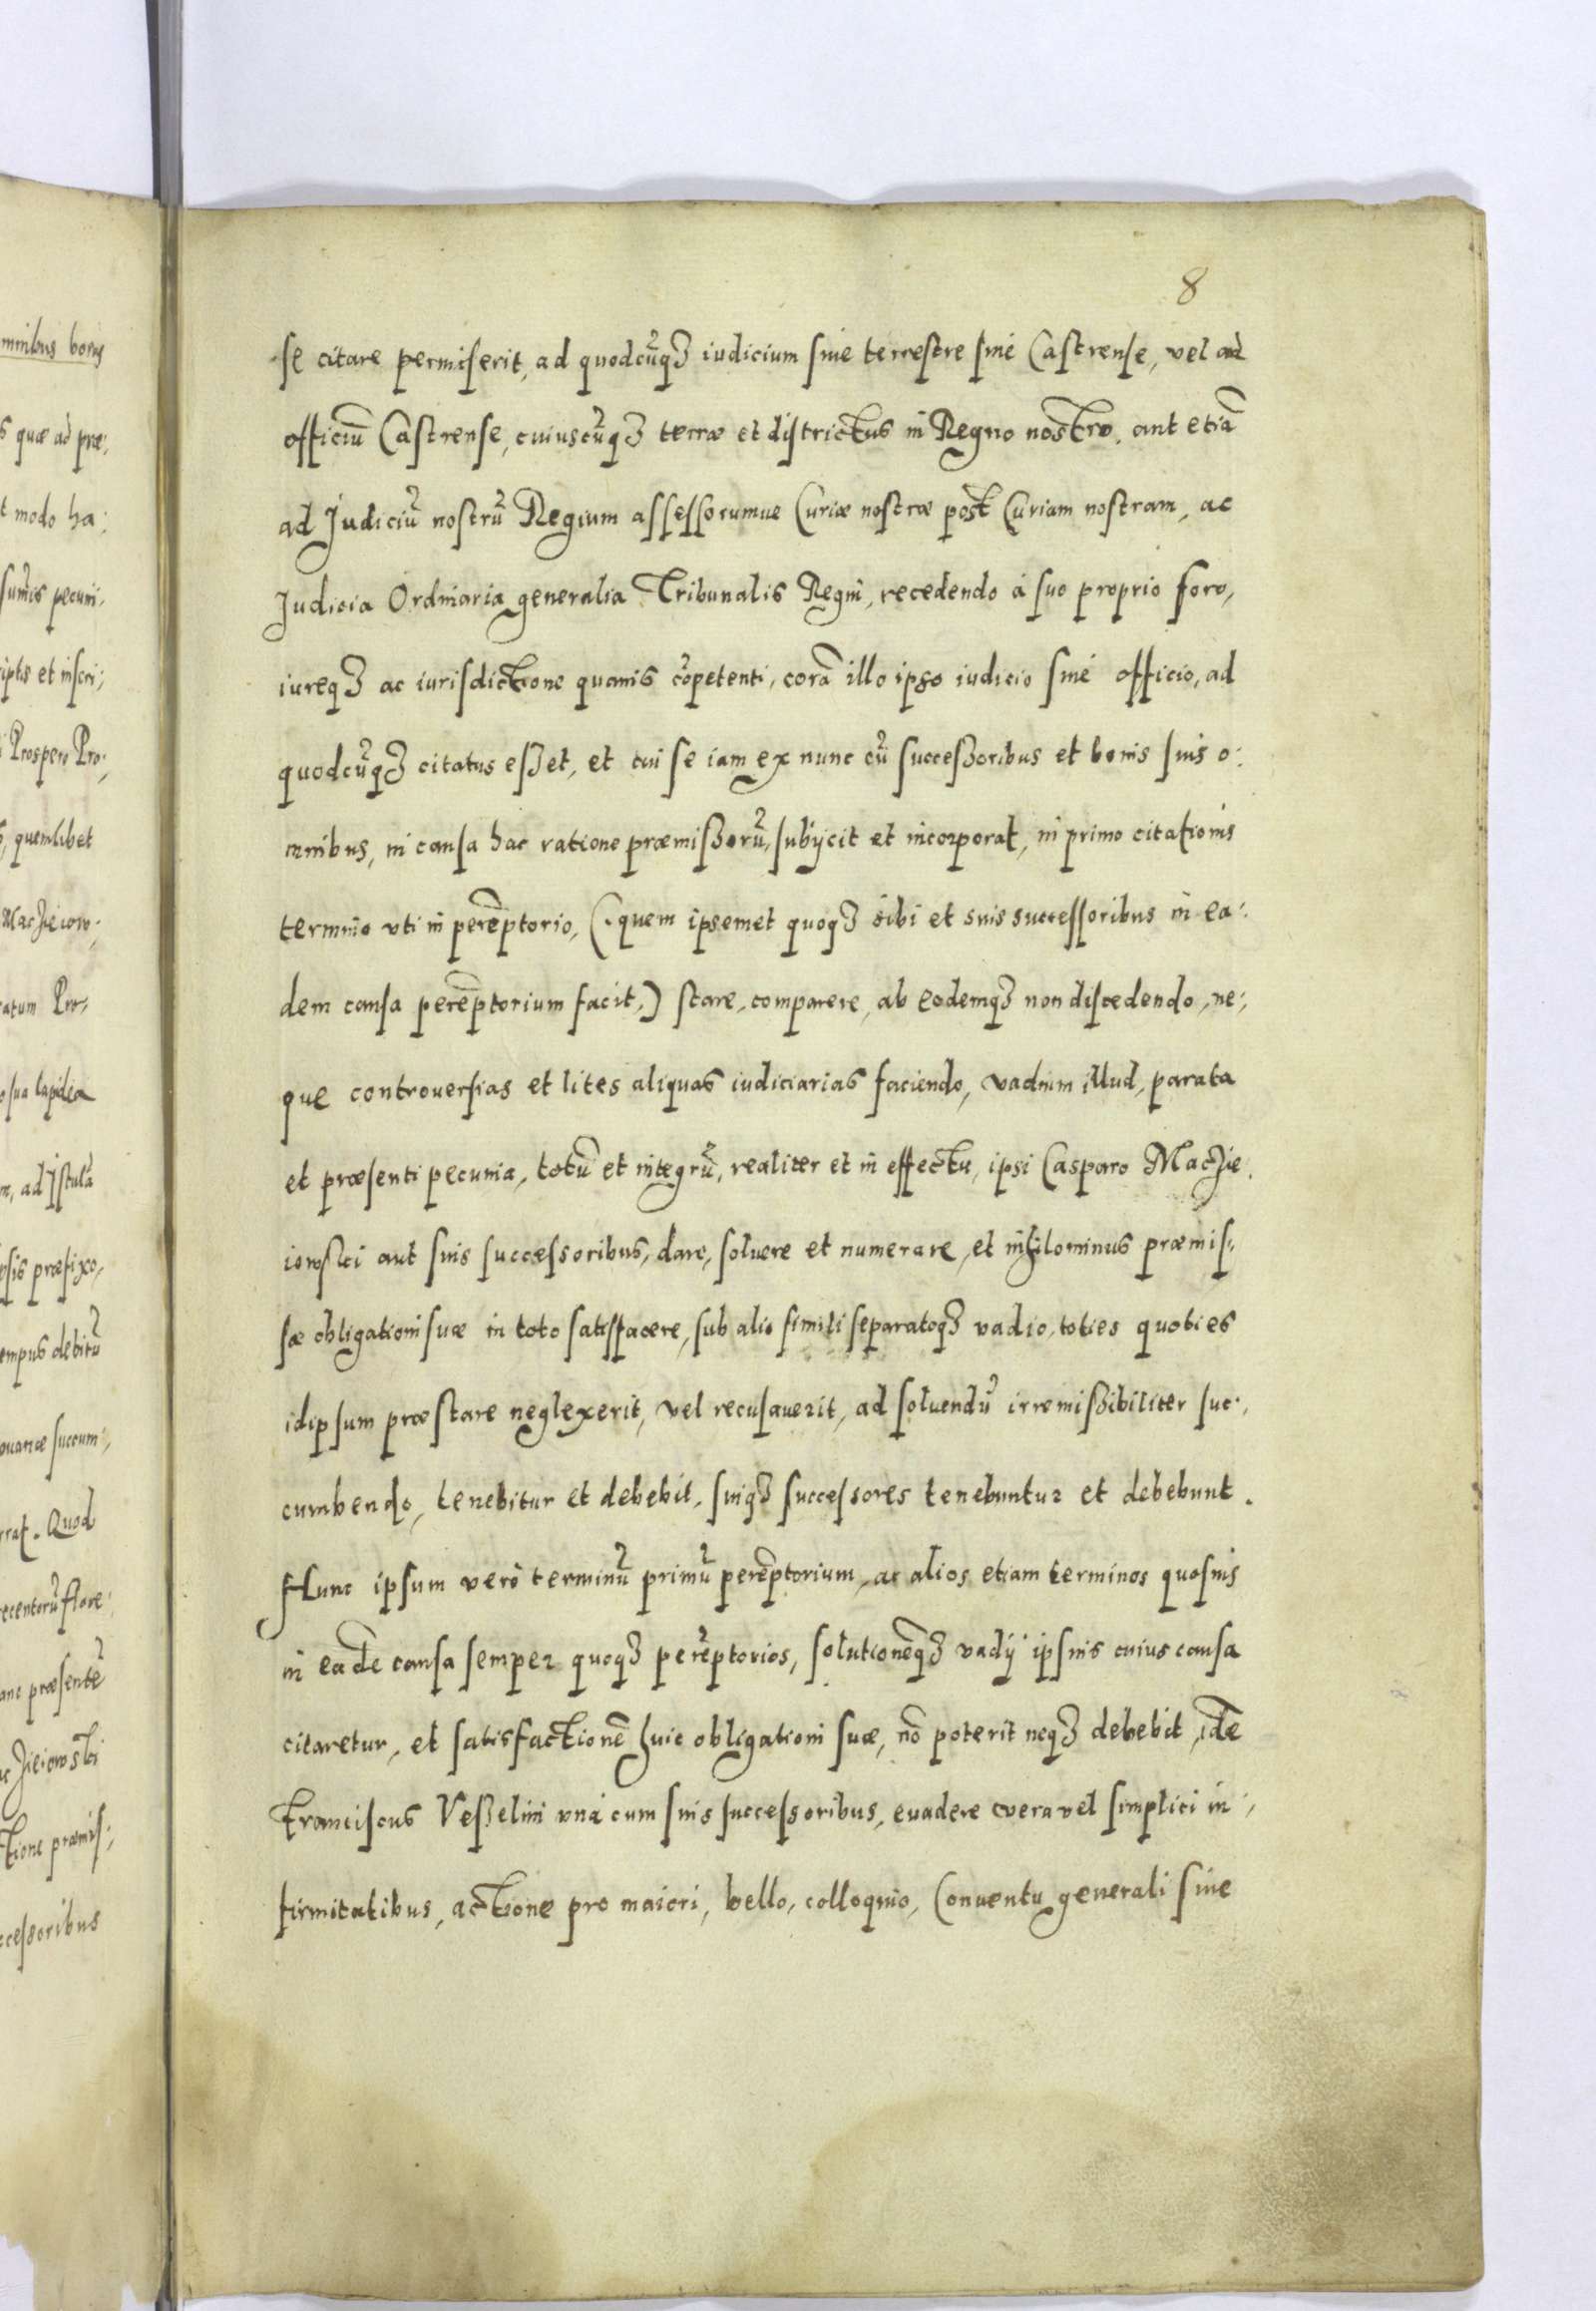 8
se citare permiserit, ad quodcūq₃ iudicium siue terrestre siue Castrense, vel ad
officiū Castrense, cuiuscūq₃ terræ et districtus in Regno nostro, aut etiā
ad Judiciū nostrū Regium assessorumue Curiæ nostræ post Curiam nostram, ac
Judicia Ordinaria generalia Tribunalis Regni, recedendo á suo proprio foro,
iureq₃ ac iurisdictione quamis cōpetenti, corā illo ipso iudicio siué officio, ad
quodcūq₃ citatus esset, et cui se iam ex nunc cū successoribus et bonis suis o:
mnibus, in causa hac ratione præmissorū, subijcit et incorporat, in primo citationis
termino vti in perēptorio, (quem ipsemet quoq₃ sibi et suis successoribus in ea:
dem causa perēptorium facit,) stare, comparere, ab eodemq₃ non discedendo, ne:,
que controuersias et lites aliquas iudiciarias faciendo, vadium illud, parata
et præsenti pecunia, totū et integrū, realiter et in effectu, ipsi Casparo Maczie.
iowski aut suis successoribus, dare, soluere et numerare, et nihilominus præmis:,
sæ obligationi suæ in toto satisfacere, sub alio simili separatoq₃ vadio, toties quoties
idipsum præstare neglexerit, vel recusauerit, ad soluendū irremissibiliter suc:,
cumbendo, tenebitur et debebit, suiq₃ successores tenebuntur et debebunt.
Hunc ipsum veró terminū primū perēptorium, ac alios etiam terminos quosuis
in eadē causa semper quoq₃ perēptorios, solutionēq₃ vadij ipsius cuius causa
citaretur, et satisfactionē huic obligationi suæ, nō poterit neq₃ debebit, idē
Franciscus Vesselini vná cum suis successoribus, euadere vera vel simplici in:,
firmitatibus, actione pro maiori, bello, colloquio, Conuentu generali siue